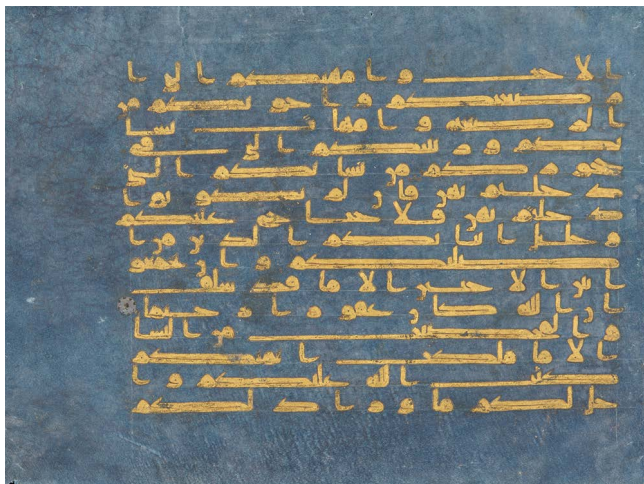 الاخت وامهتكم التي ا
رضعنكم واخوتكم من
الرضعة وامهت نسا
ئكم وربئبكم التي في
حجوركم من نسائكم التي
دخلتم بهن فان لم تكونوا
دخلتم بهن فلا جناح عليكم
وحلئل ابنائكم الذين من ا
صلبكم وان تجمعوا
بين الاختين الا ما قد سلف
ان الله كان غفورا رحيما
والمحصنت من النسا
الا ما ملكت ايمنكم
كتب الله عليكم وا
حل لكم ما ورا ذلكم